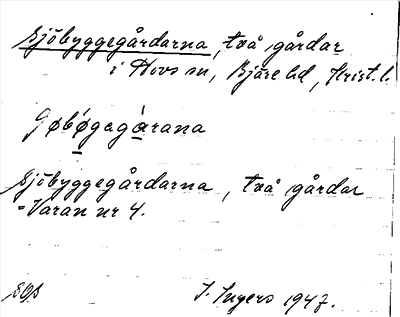 Sjöbyggegårdarna, två gårdar
i Hovs sn, Bjäre hd, Krist. l.
Sjöbyggegårdarna, två gårdar
= Varan nr 4.
I. Ingers 1947.